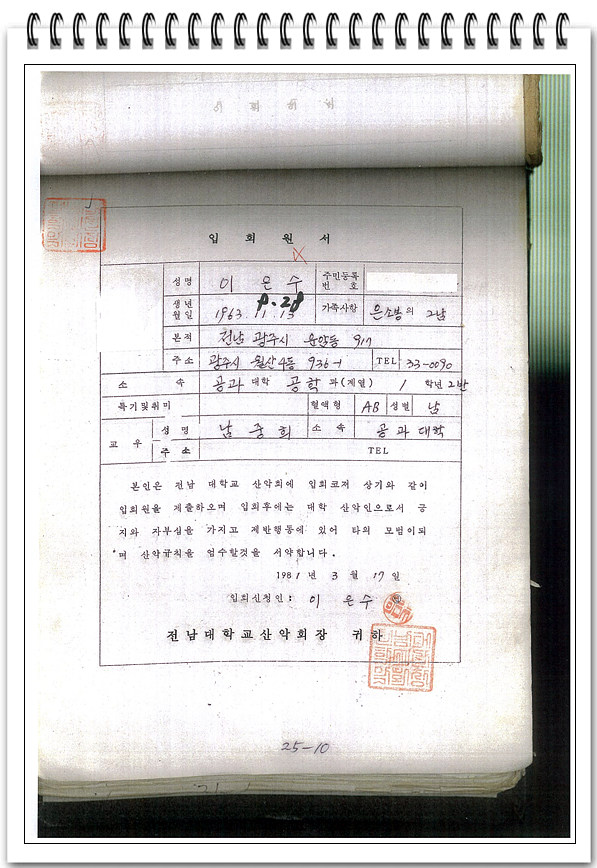 입 회 원 서
성명 이 은 수 주민등록 번 호
생년 월일 1963. 11. 15 8.28 가족사항 은소봉의 2남
본적 전남 광주시 운암동 917
주소 광주시 월산4동 936-1 TEL 33-0090
소 속 공과 대학 공학 과(계열) 1 학년 2반
특기및취미 혈액형 AB 성별 남
교 우 성 명 남 중 희 소 속 공 과 대학
주 소 TEL
본인은 전남 대학교 산악회에 입회코저 상기와 같이
입회원을 제출하오며 입회후에는 대학 산악인으로서 긍
지와 자부심을 가지고 제반행동에 있어 타의 모범이되
며 산악규칙을 엄수할것을 서약합니다.
1981 년 3 월 17 일
입회신청인: 이 은 수
전남대학교산악회장 귀하
25-10